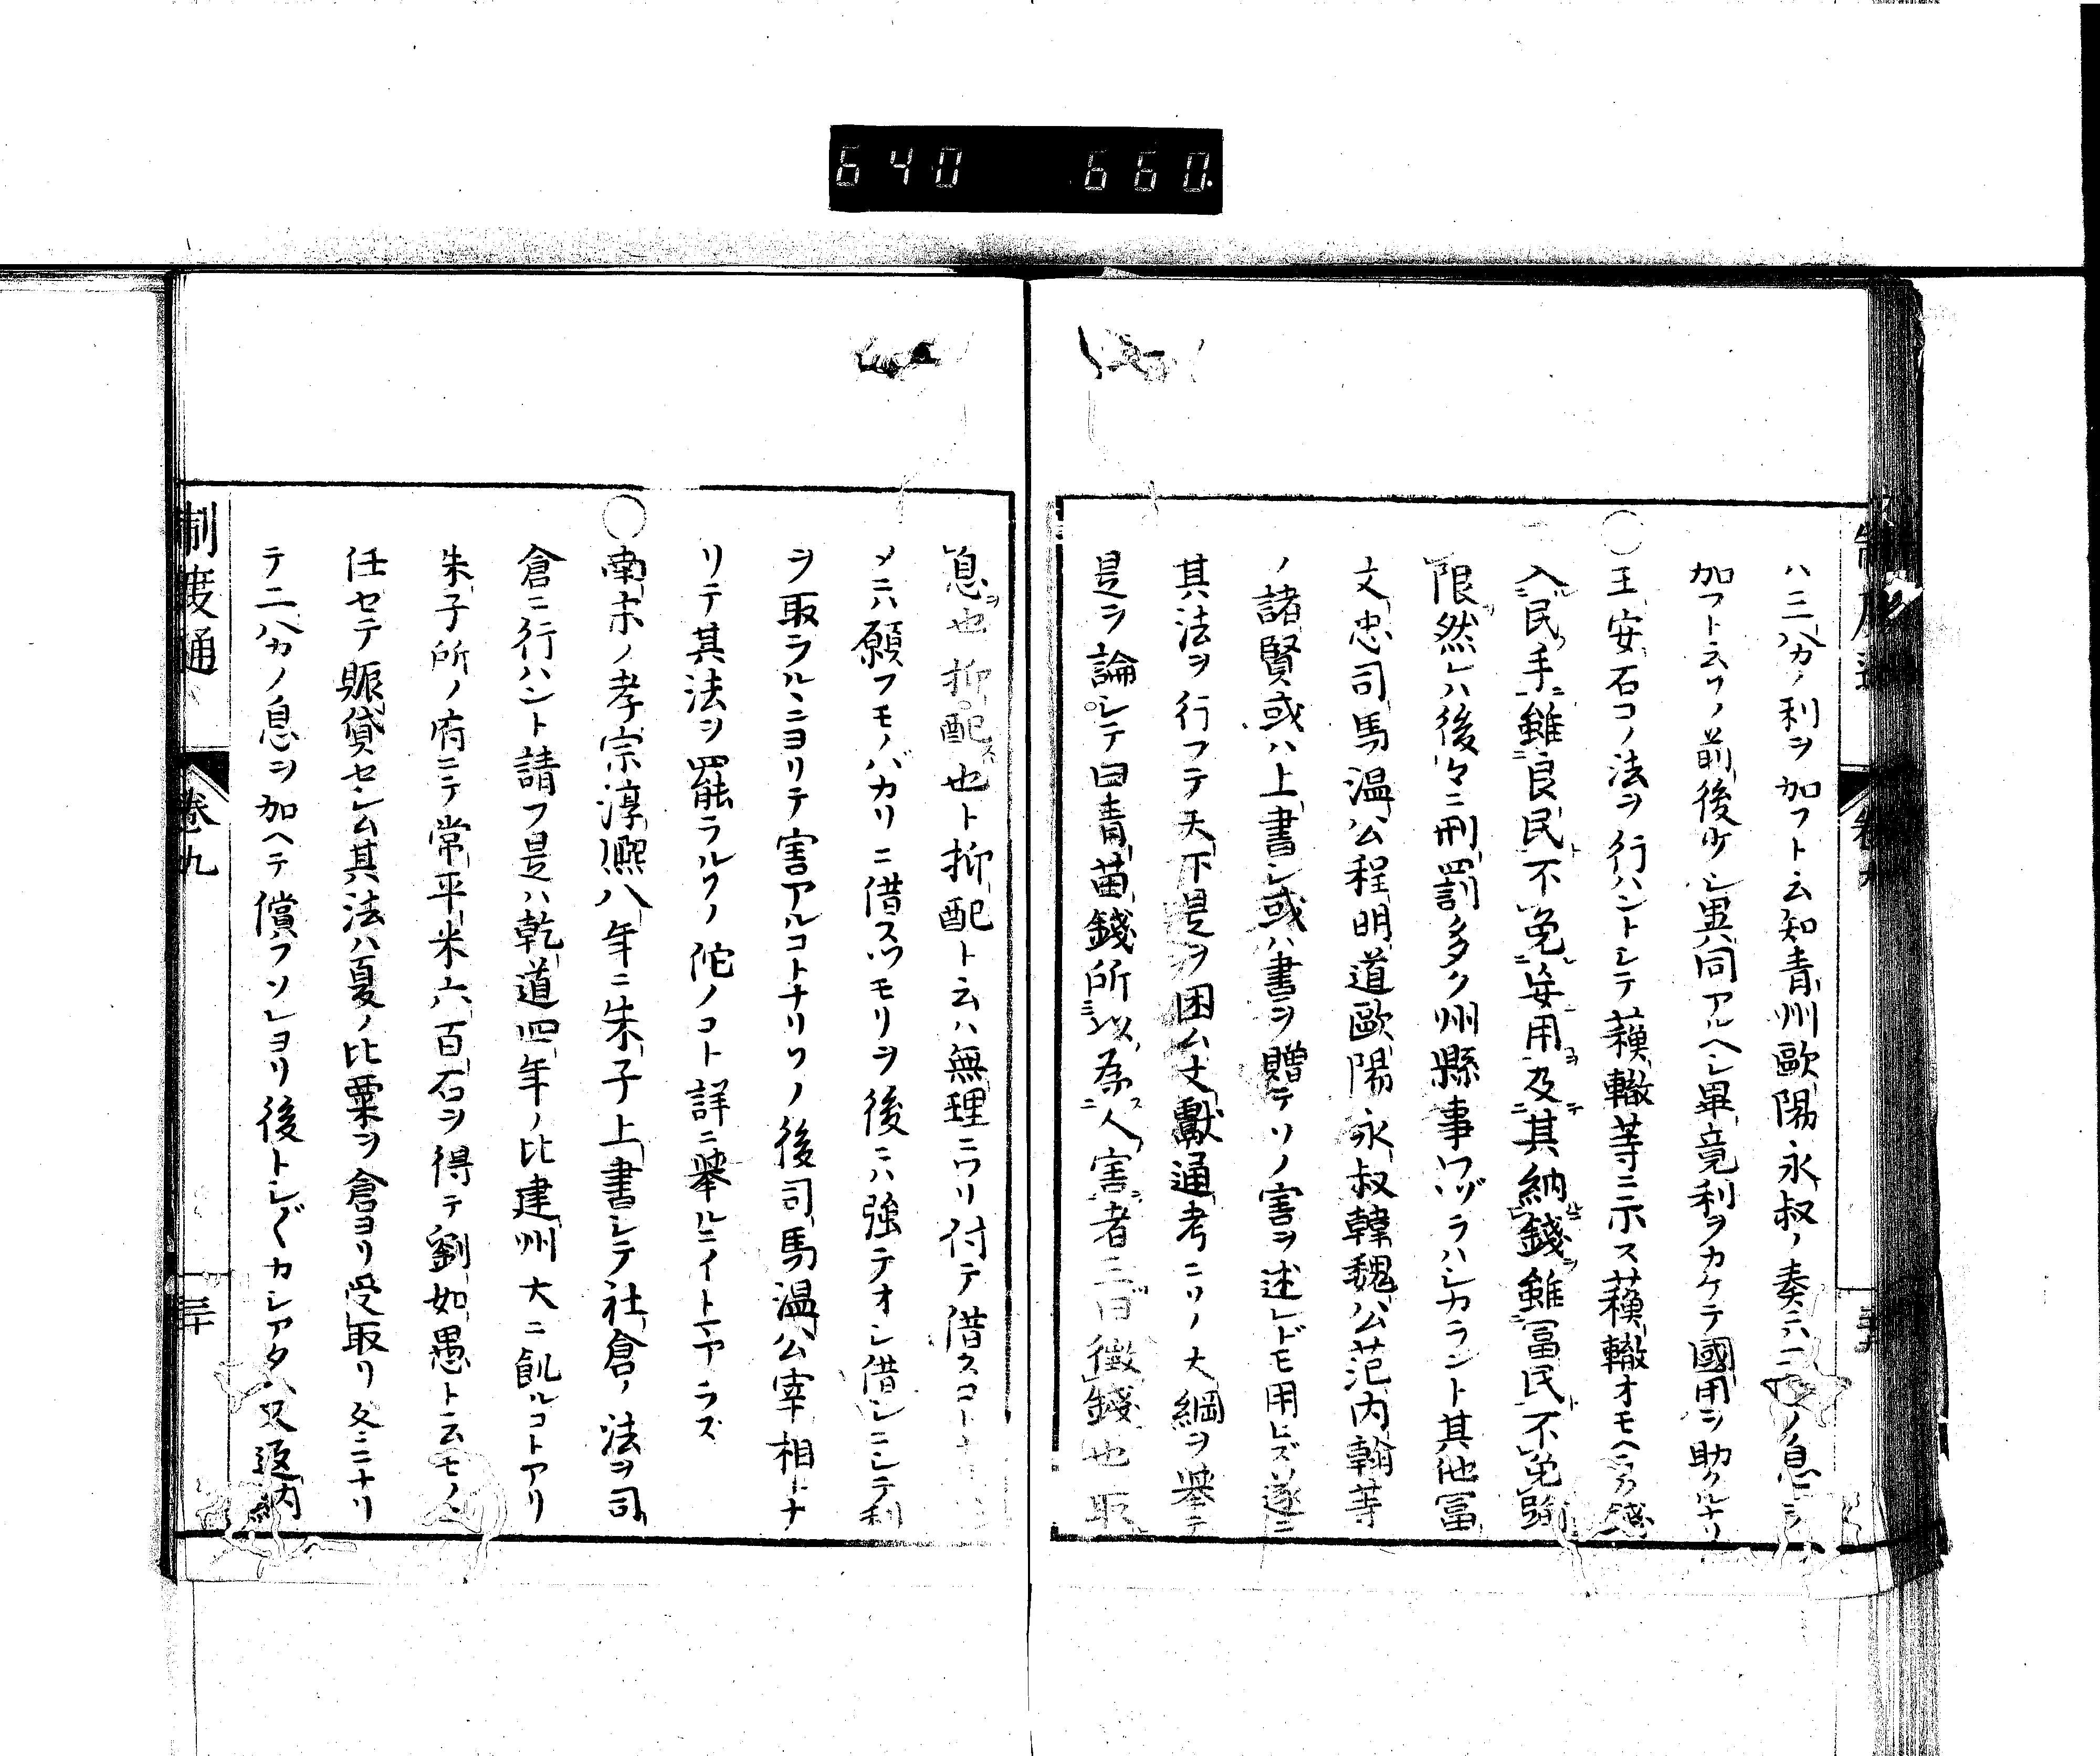 640 660.
ハ三分ノ利ヲ加フト云知青州歐陽永叔ノ奏ニハ二分ノ息ヲ
加フト云フノ前後少シ異同アルヘシ畢竟利ヲカケテ國用ヲ助クルナリ
〇王安石コノ法ヲ行ハントシテ蘓轍等ニ示ス蘓轍オモヘラク錢
入民手雖良民不免妄用及其納錢雖冨民不免踰
限然レハ後々ニ刑罰多ク州縣事ワヅラハシカラント其他冨
文忠司馬温公程明道歐陽永叔韓魏公范内翰等
ノ諸賢或ハ上書シ或ハ書ヲ贈テソノ害ヲ述レドモ用ヒズ遂ニ
其法ヲ行フテ天下是ヲ困ム文獻通考ニソノ大綱ヲ舉テ
是ヲ論シテ曰青苗錢所以為人害者三曰徴錢也取
息也抑配也ト抑配ト云ハ無理ニワリ付テ借スコト
メニハ願フモノバカリニ借スツモリヲ後ニハ強テオシ借シニシテ利
ヲ取ラルヽニヨリテ害アルコトナリソノ後司馬温公宰相トナ
リテ其法ヲ罷ラルソノ佗ノコト詳ニ舉ルニイトマアラズ
〇南宋ノ孝宗淳熈八年ニ朱子上書シテ社倉ノ法ヲ司
倉ニ行ハント請フ是ハ乾道四年ノ比建州大ニ飢ルコトアリ
朱子所ノ府ニテ常平米六百石ヲ得テ劉如愚ト云モノニ
任セテ賑貸セシム其法ハ夏ノ比粟ヲ倉ヨリ受取リ冬ニナリ
テ二分ノ息ヲ加ヘテ償フソレヨリ後トシ〲カシアタヘ又返納
制度通 卷九 三十